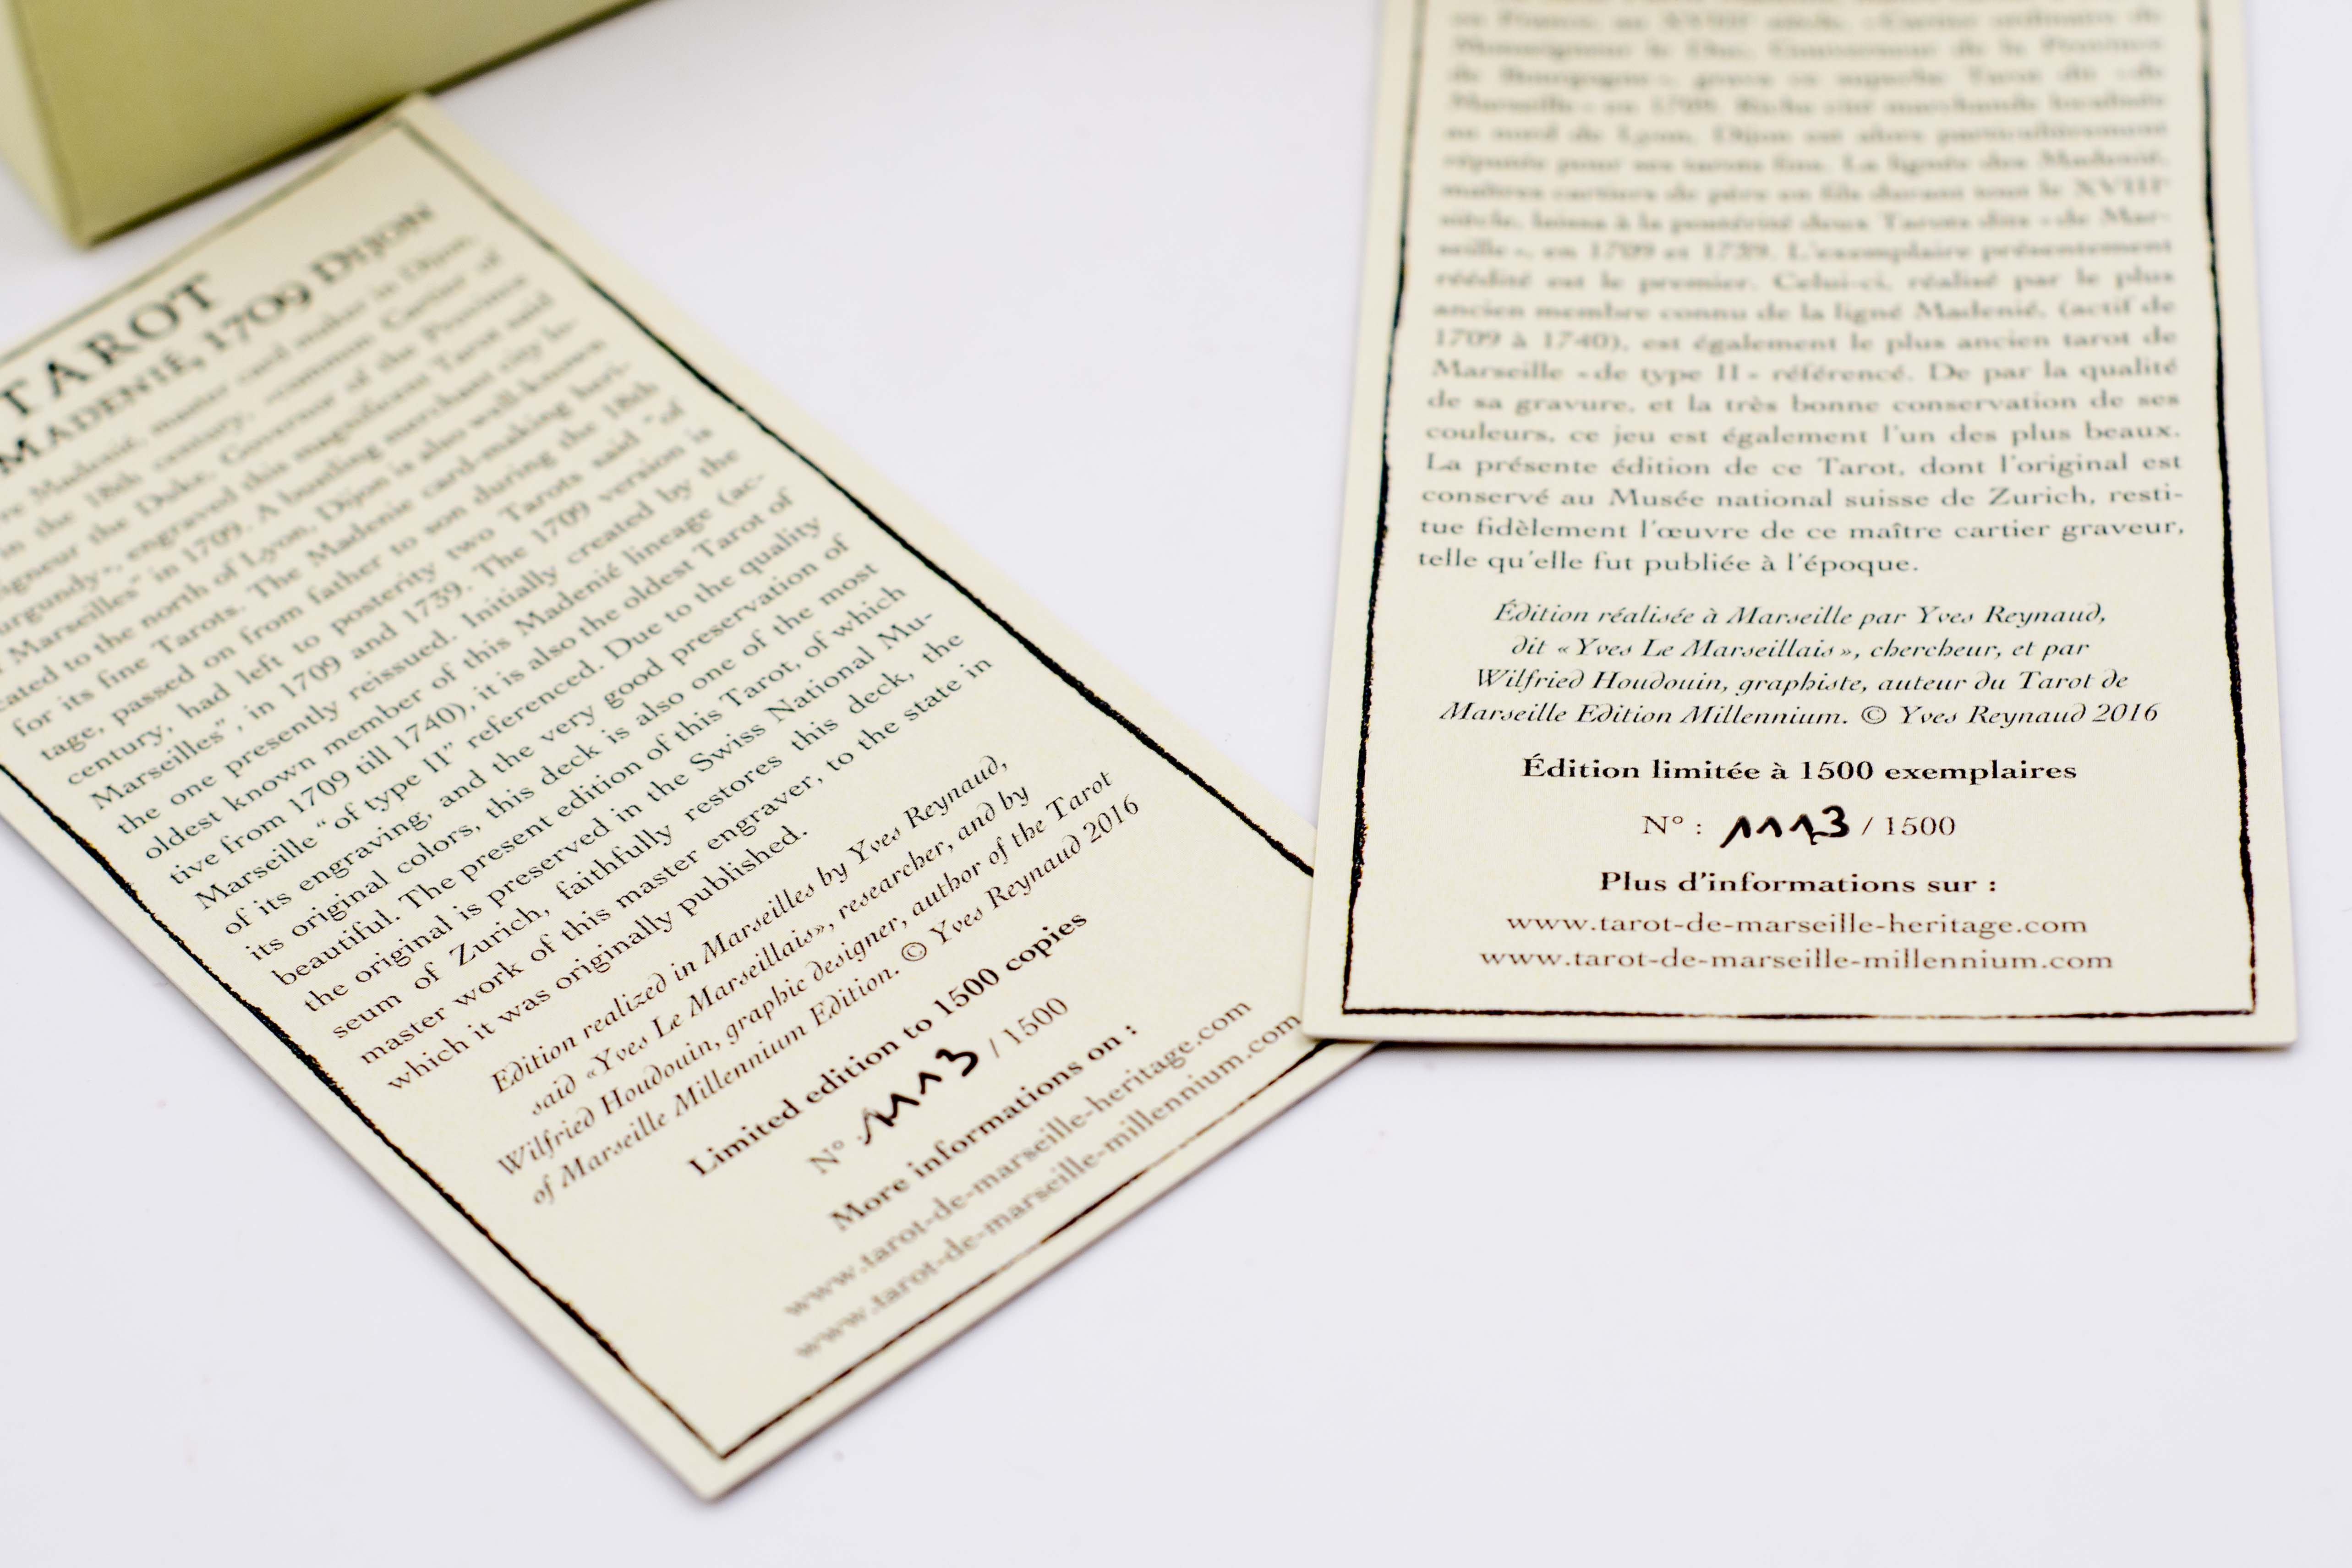 TAROT
MADENIÉ, 1709 DIJON
re Madenié, master card maker in Dijon,
in the 18th century, «common Cartier of
igneur the Duke, Governor of the Province
urgundy», engraved this magnificent Tarot said
Marseilles" in 1709. A bustling merchant city lo-
cated to the north of Lyon, Dijon is also well-known
for its fine Tarots. The Madenie card-making heri-
tage, passed on from father to son during the 18th
century, had left to posterity two Tarots said "of
Marseilles", in 1709 and 1739. The 1709 version is
the one presently reissued. Initially created by the
oldest known member of this Madenié lineage (ac-
tive from 1709 till 1740), it is also the oldest Tarot of
Marseille "of type II" referenced. Due to the quality
of its engraving, and the very good preservation of
its original colors, this deck is also one of the most
beautiful. The present edition of this Tarot, of which
the original is preserved in the Swiss National Mu-
seum of Zurich, faithfully restores this deck, the
master work of this master engraver, to the state in
which it was originally published.
Edition realized in Marseilles by Yves Reynaud,
said «Yves Le Marseillais», researcher, and by
Wilfried Houdouin, graphic designer, author of the Tarot
of Marseille Millennium Edition. © Yves Reynaud 2016
Limited edition to 1500 copies
N° : 1113 / 1500
More informations on :
www.tarot-de-marseille-heritage.com
www.tarot-de-marseille-millennium.com
en France, au XVIIIe siècle, «Cartier ordinaire de
Monseigneur le Duc, Gouverneur de la Province
de Bourgogne», grava ce superbe Tarot dit «de
Marseille» en 1709. Riche cité marchande localisée
au nord de Lyon, Dijon est alors particulièrement
réputée pour ses tarots fins. La lignée des Madenié,
maîtres cartiers de père en fils durant tout le XVIIIe
siècle, laissa à la postérité deux Tarots dits «de Mar-
seille», en 1709 et 1739. L'exemplaire présentement
réédité est le premier. Celui-ci, réalisé par le plus
ancien membre connu de la ligné Madenié, (actif de
1709 à 1740), est également le plus ancien tarot de
Marseille «de type II» référencé. De par la qualité
de sa gravure, et la très bonne conservation de ses
couleurs, ce jeu est également l'un des plus beaux.
La présente édition de ce Tarot, dont l'original est
conservé au Musée national suisse de Zurich, resti-
tue fidèlement l'œuvre de ce maître cartier graveur,
telle qu'elle fut publiée à l'époque.
Édition réalisée à Marseille par Yves Reynaud,
dit «Yves Le Marseillais», chercheur, et par
Wilfried Houdouin, graphiste, auteur du Tarot de
Marseille Edition Millennium. © Yves Reynaud 2016
Édition limitée à 1500 exemplaires
N° : 1113 / 1500
Plus d'informations sur :
www.tarot-de-marseille-heritage.com
www.tarot-de-marseille-millennium.com